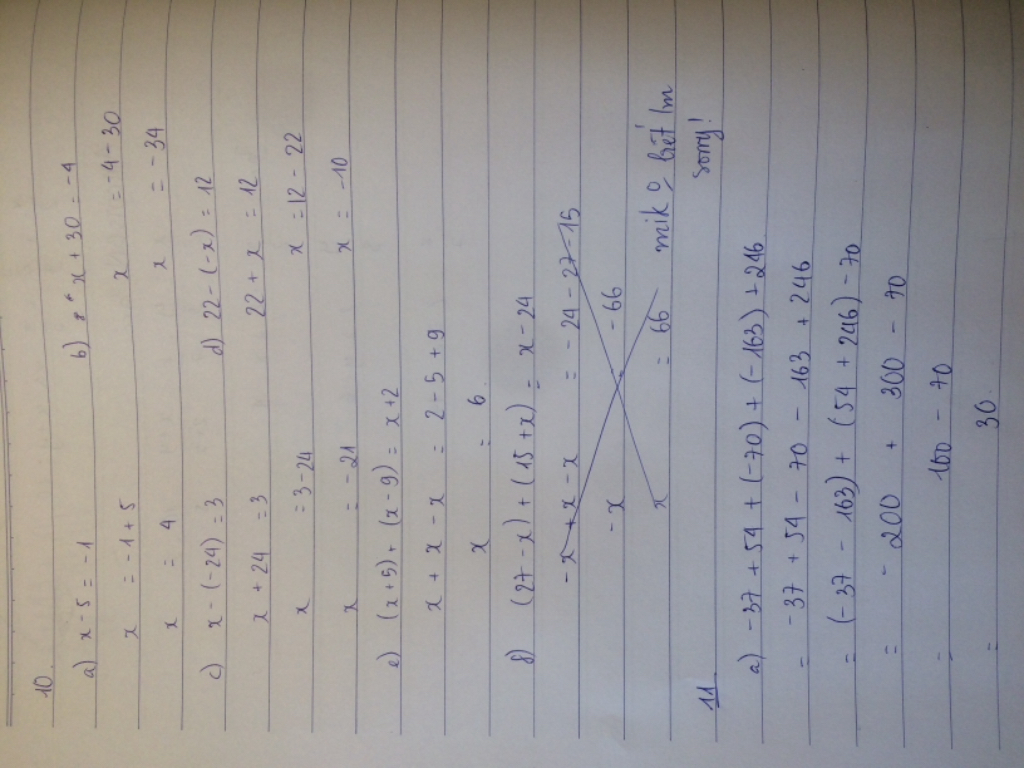 10.
a) x - 5 = -1 b) x + 30 = -4
x = -1 + 5 x = -4 - 30
x = 4 x = -34
c) x - (-24) = 3 d) 22 - (-x) = 12
x + 24 = 3 22 + x = 12
x = 3 - 24 x = 12 - 22
x = -21 x = -10
e) (x + 5) + (x - 9) = x + 2
x + x - x = 2 - 5 + 9
x = 6.
(27 - x) + (15 + x) = x - 24
-x + x - x = - 24 - 27 - 15
-x - 66
x = 66 mik o bét lm
sorry!
11
a) -37 + 54 + (-70) + (-163) + 246
= -37 + 54 - 70 - 163 + 246
= (-37 - 163) + (54 + 246) - 70
= - 200 + 300 - 70
= 100 - 70
= 30.